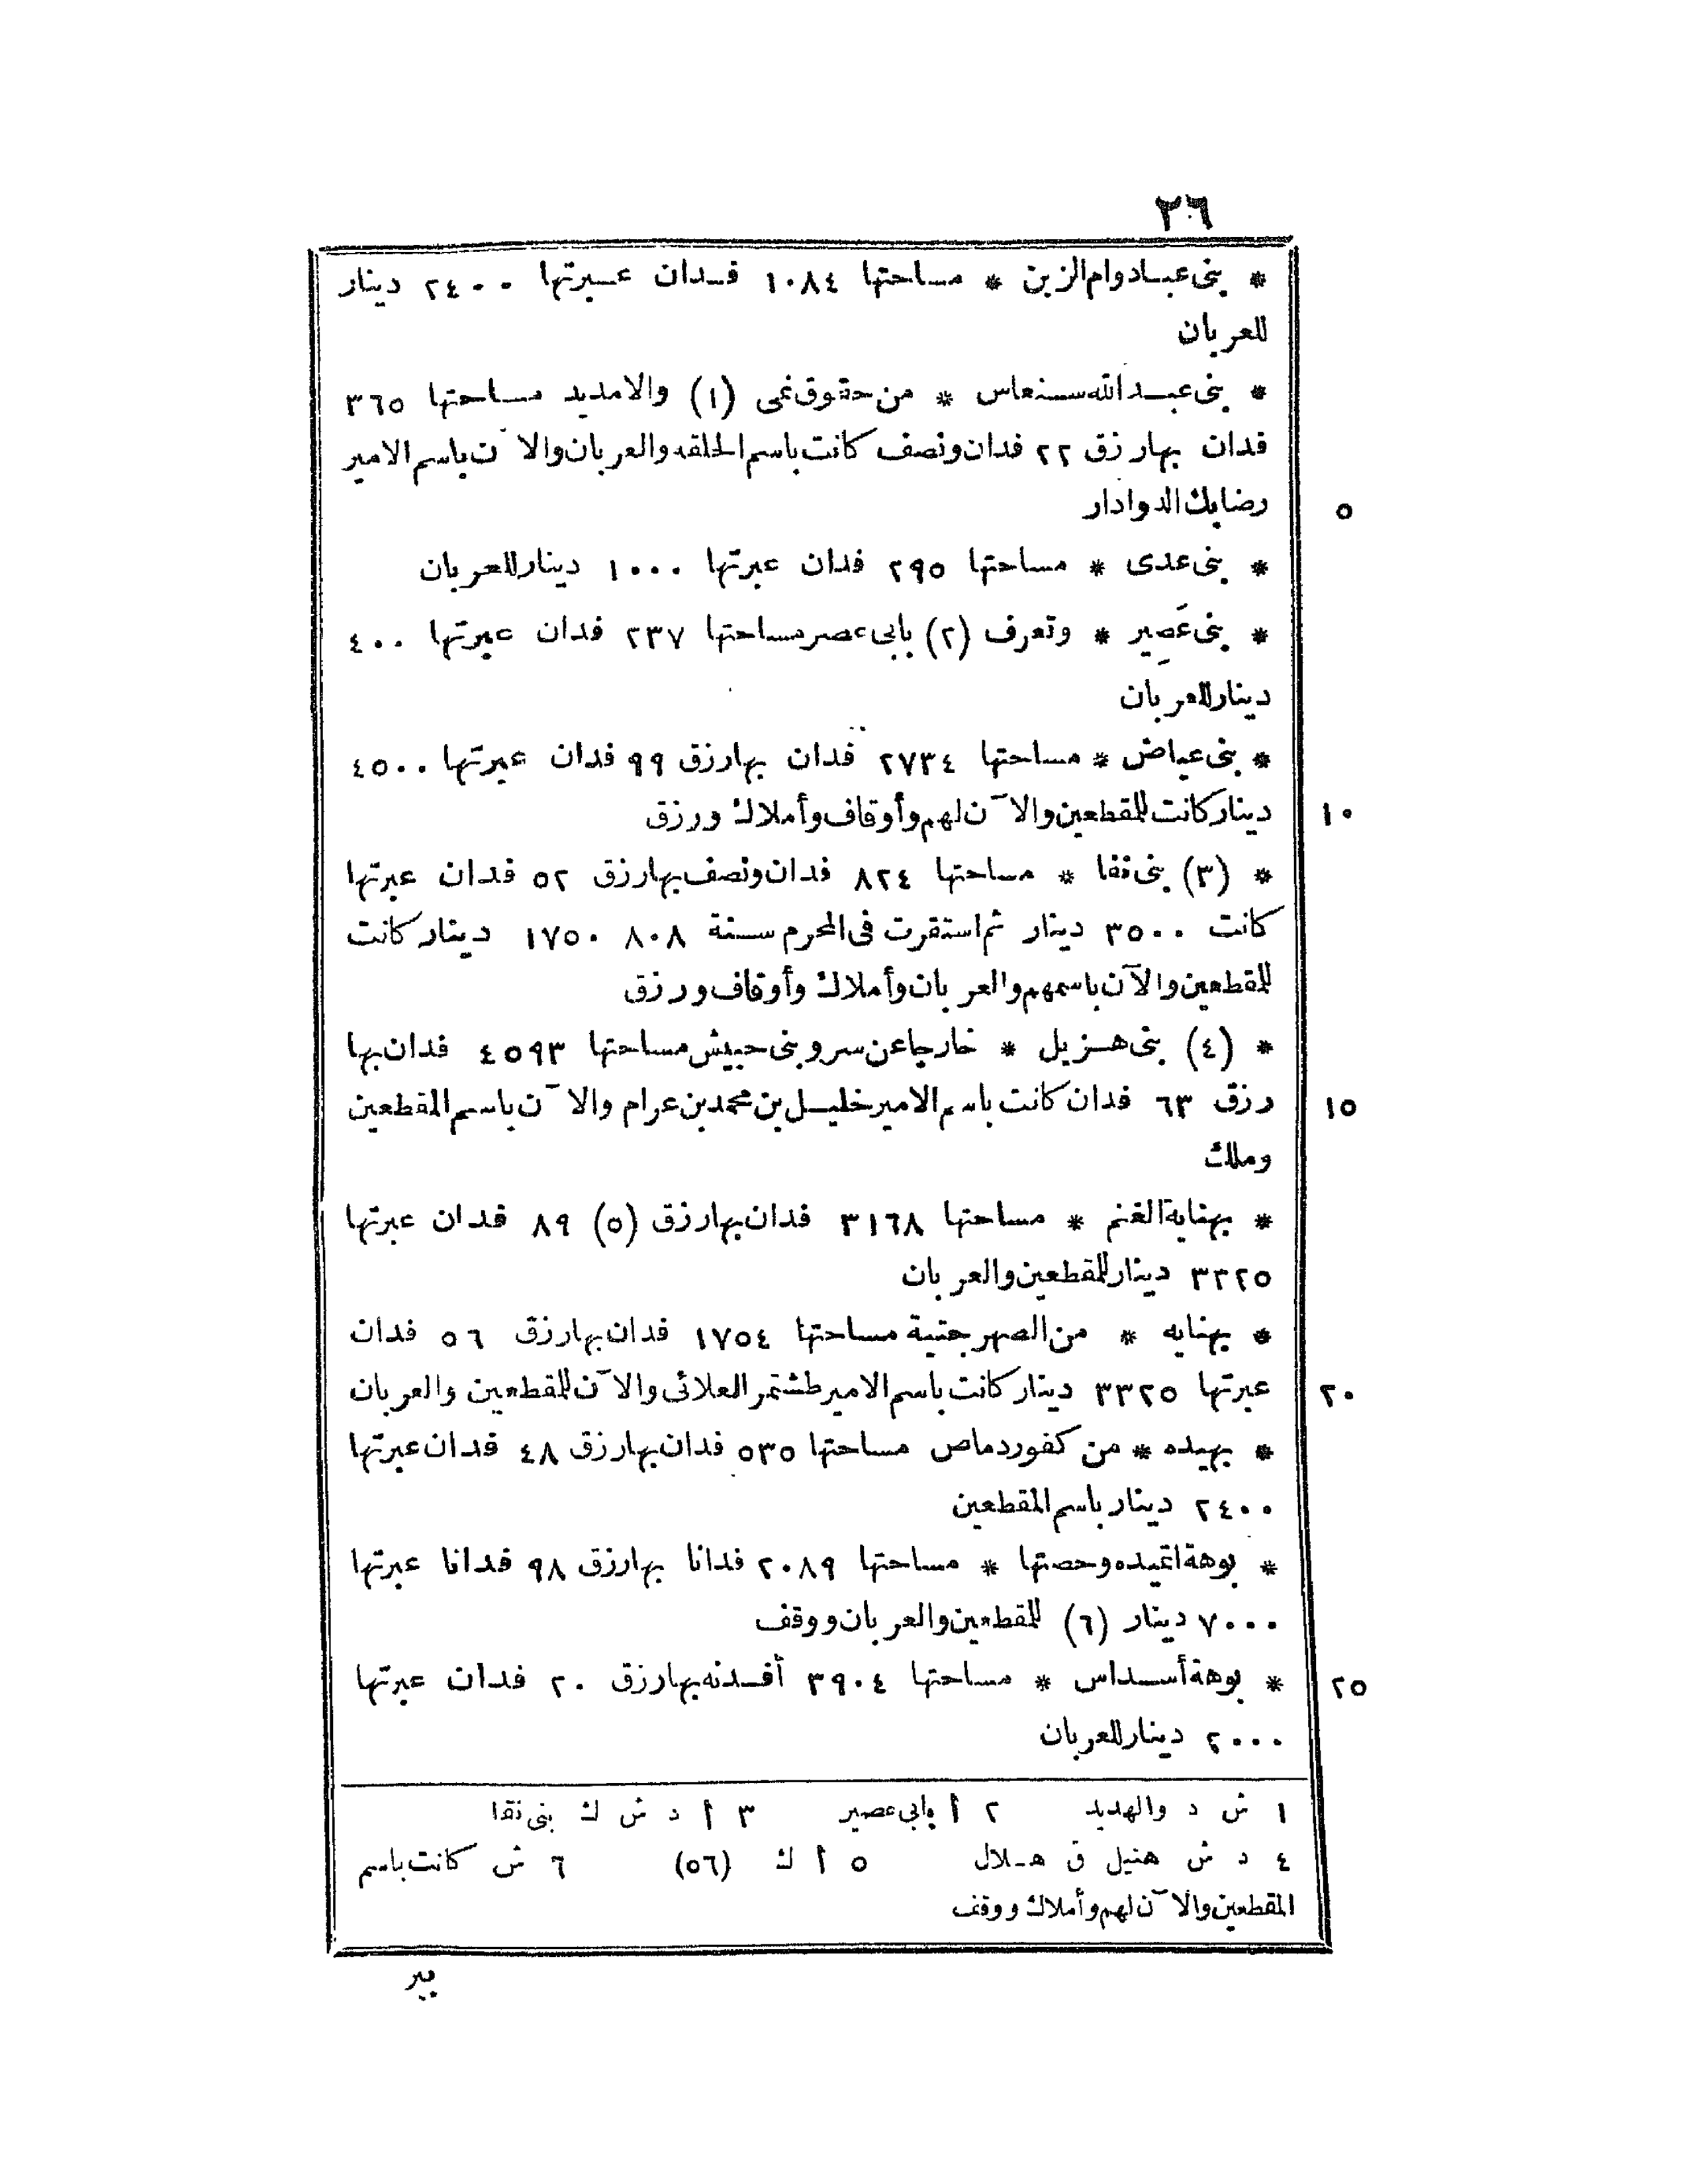 ٢٦
* بنى عباد وام الزين * مساحتها ١٠٨٤ فدان عبرتها ٢٤٠٠ دينار
للعربان
* بنى عبد الله سنعاس * من حقوق نمى (١) والامديد مساحتها ٣٦٥
فدان بها رزق ٢٢ فدان ونصف كانت باسم الحلقه والعربان والآن باسم الامير
رضابك الدوادار
٥
* بنى عدى * مساحتها ٢٩٥ فدان عبرتها ١٠٠٠ دينار للعربان
* بنى عَصِير * وتعرف (٢) بابى عصر مساحتها ٢٣٧ فدان عبرتها ٤٠٠
دينار للعربان
* بنى عياض * مساحتها ٢٧٣٤ فدان بها رزق ٩٩ فدان عبرتها ٤٥٠٠
دينار كانت للمقطعين والآن لهم وأوقاف وأملاك ورزق
١٠
* (٣) بنى نفا * مساحتها ٨٢٤ فدان ونصف بها رزق ٥٢ فدان عبرتها
كانت ٣٥٠٠ دينار ثم استقرت فى المحرم سنة ٨٠٨ ١٧٥٠ دينار كانت
للمقطعين والآن باسمهم والعربان وأملاك وأوقاف ورزق
* (٤) بنى هزيل * خارجا عن سرو بنى حبيش مساحتها ٤٥٩٣ فدان بها
رزق ٦٣ فدان كانت باسم الامير خليل بن محمد بن عرام والآن باسم المقطعين
١٥
وملك
* بهنايه الغنم * مساحتها ٣١٦٨ فدان بها رزق (٥) ٨٩ فدان عبرتها
٣٣٢٥ دينار للمقطعين والعربان
* بهنايه * من الصهرجتية مساحتها ١٧٥٤ فدان بها رزق ٥٦ فدان
عبرتها ٣٣٢٥ دينار كانت باسم الامير طشتمر العلائى والآن للمقطعين والعربان
٢٠
* بهيده * من كفور دماص مساحتها ٥٣٥ فدان بها رزق ٤٨ فدان عبرتها
٢٤٠٠ دينار باسم المقطعين
* بوهة اتميده وحصتها * مساحتها ٢٠٨٩ فدانا بها رزق ٩٨ فدانا عبرتها
٧٠٠٠ دينار (٦) للمقطعين والعربان ووقف
* بوهة أسداس * مساحتها ٣٩٠٤ أفدنه بها رزق ٢٠ فدان عبرتها
٢٥
٢٠٠٠ دينار للعربان
١ ش د والهديد ٢ أ بابى عصير ٣ أ د ش ك بنى نقا
٤ د ش هنيل ق هلال ٥ أ ك (٥٦) ٦ ش كانت باسم
المقطعين والآن لهم وأملاك ووقف